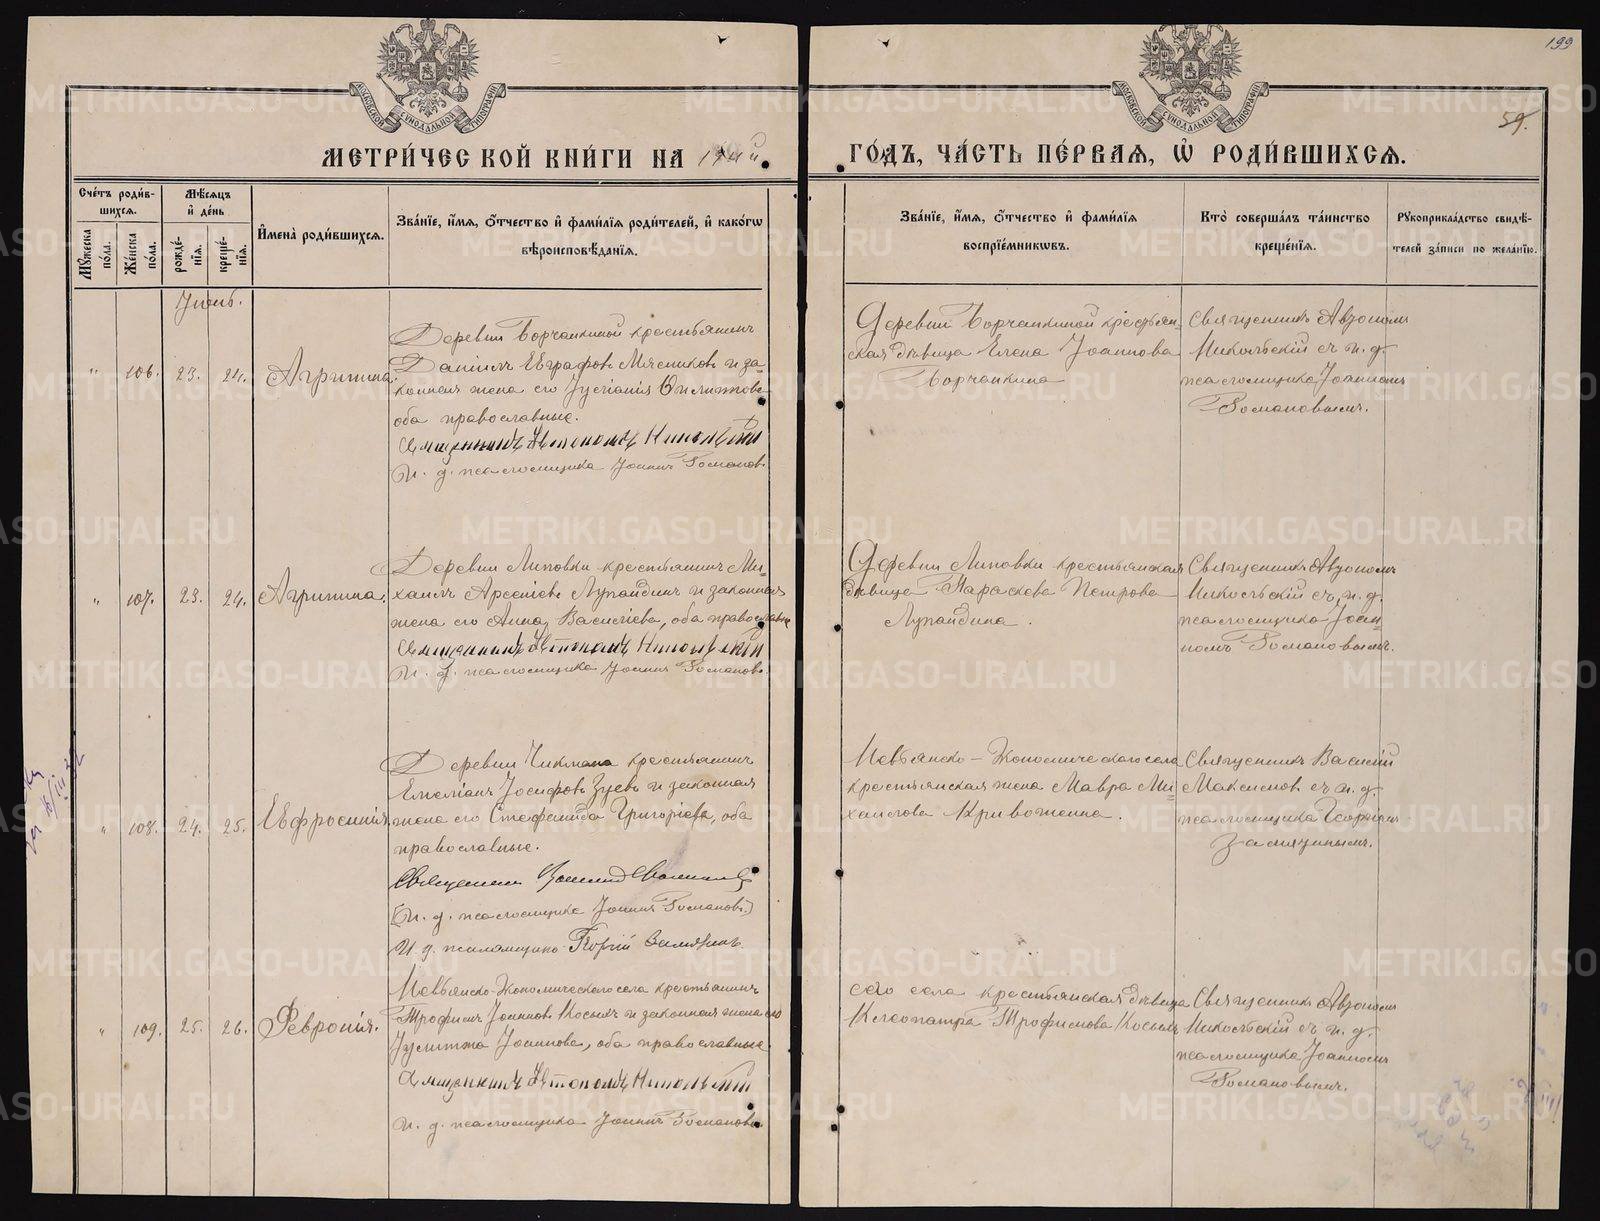 199
59.
МОСКОВСКОЙ СѴНОДАЛЬНОЙ ТИПОГРАФІИ
МОСКОВСКОЙ СѴНОДАЛЬНОЙ ТИПОГРАФІИ
МЕТРИ́ЧЕСКОЙ КНИ́ГИ НА
ГО́ДЪ, ЧА́СТЬ ПЕ́РВАЯ, Ѡ҆ РОДИ́ВШИХСЯ.
Сче́тъ роди́в-
шихся.
Мꙋ́жеска по́ла.
Же́нска по́ла.
Мѣ́сяцъ и҆ де́нь
рожде́-
нїя.
креще́-
нїя.
И҆мена̀ роди́вшихся.
Зва́нїе, и҆́мя, ѻ҆́тчество и҆ фами́лїя роди́телей, и҆ како́гѡ
вѣроисповѣ́данїя.
Зва́нїе, и҆́мя, ѻ҆́тчество и҆ фами́лїя
воспрїе́мникѡвъ.
Кто̀ соверша́лъ та́инство
креще́нїя.
Рꙋкоприкла́дство свидѣ́-
телей за́писи по жела́нїю.
" 106. 23. 24. Агрипина.
Деревни Борчанкиной крестьянинъ
Даніилъ Евграфовъ Мясниковъ и за-
конная жена его Іустіанія Филиппова
оба православные.
Священникъ Автономъ Никольскій
И. д. псаломщика Іоаннъ Романовъ.
Деревни Борчанкиной крестьян-
ская дѣвица Елена Іоаннова
Борчанкина
Священникъ Автономъ
Никольскій съ и. д.
псаломщика Іоанномъ
Романовымъ.
" 107. 23. 24. Агрипина.
Деревни Липовки крестьянинъ Ми-
хаилъ Арсеніевъ Лупандинъ и законная
жена его Анна Василіева, оба православные
Священникъ Автономъ Никольскій
И. д. псаломщика Іоаннъ Романовъ.
Деревни Липовки крестьянская
дѣвица Параскева Петрова
Лупандина.
Священникъ Автономъ
Никольскій съ и. д.
псаломщика Іоан-
номъ Романовымъ.
" 108. 24. 25. Евфросинія.
Деревни Чикмана крестьянинъ
Емеліанъ Іосифовъ Зуевъ и законная
жена его Стефанида Григоріева, оба
православные.
Священникъ Василій
(И. д. псаломщика Іоаннъ Романовъ.)
И. д. псаломщика Георгій Замятинъ.
Невьянско-Экономическаго села
крестьянская жена Мавра Ми-
хаилова Кривоженна.
Священникъ Василій
Максимовъ съ и. д.
псаломщика Георгіемъ
Замятинымъ.
" 109. 25. 26. Февронія.
Невьянско-Экономическаго села крестьянинъ
Трофимъ Іоанновъ Косыхъ и законная жена его
Іулитта Іоаннова, оба православные.
Священникъ Автономъ Никольскій
И. д. псаломщика Іоаннъ Романовъ.
сего села крестьянская дѣвица
Клеопатра Трофимова Косыхъ
Священникъ Автономъ
Никольскій съ и. д.
псаломщика Іоанномъ
Романовымъ.
METRIKI.GASO-URAL.RU